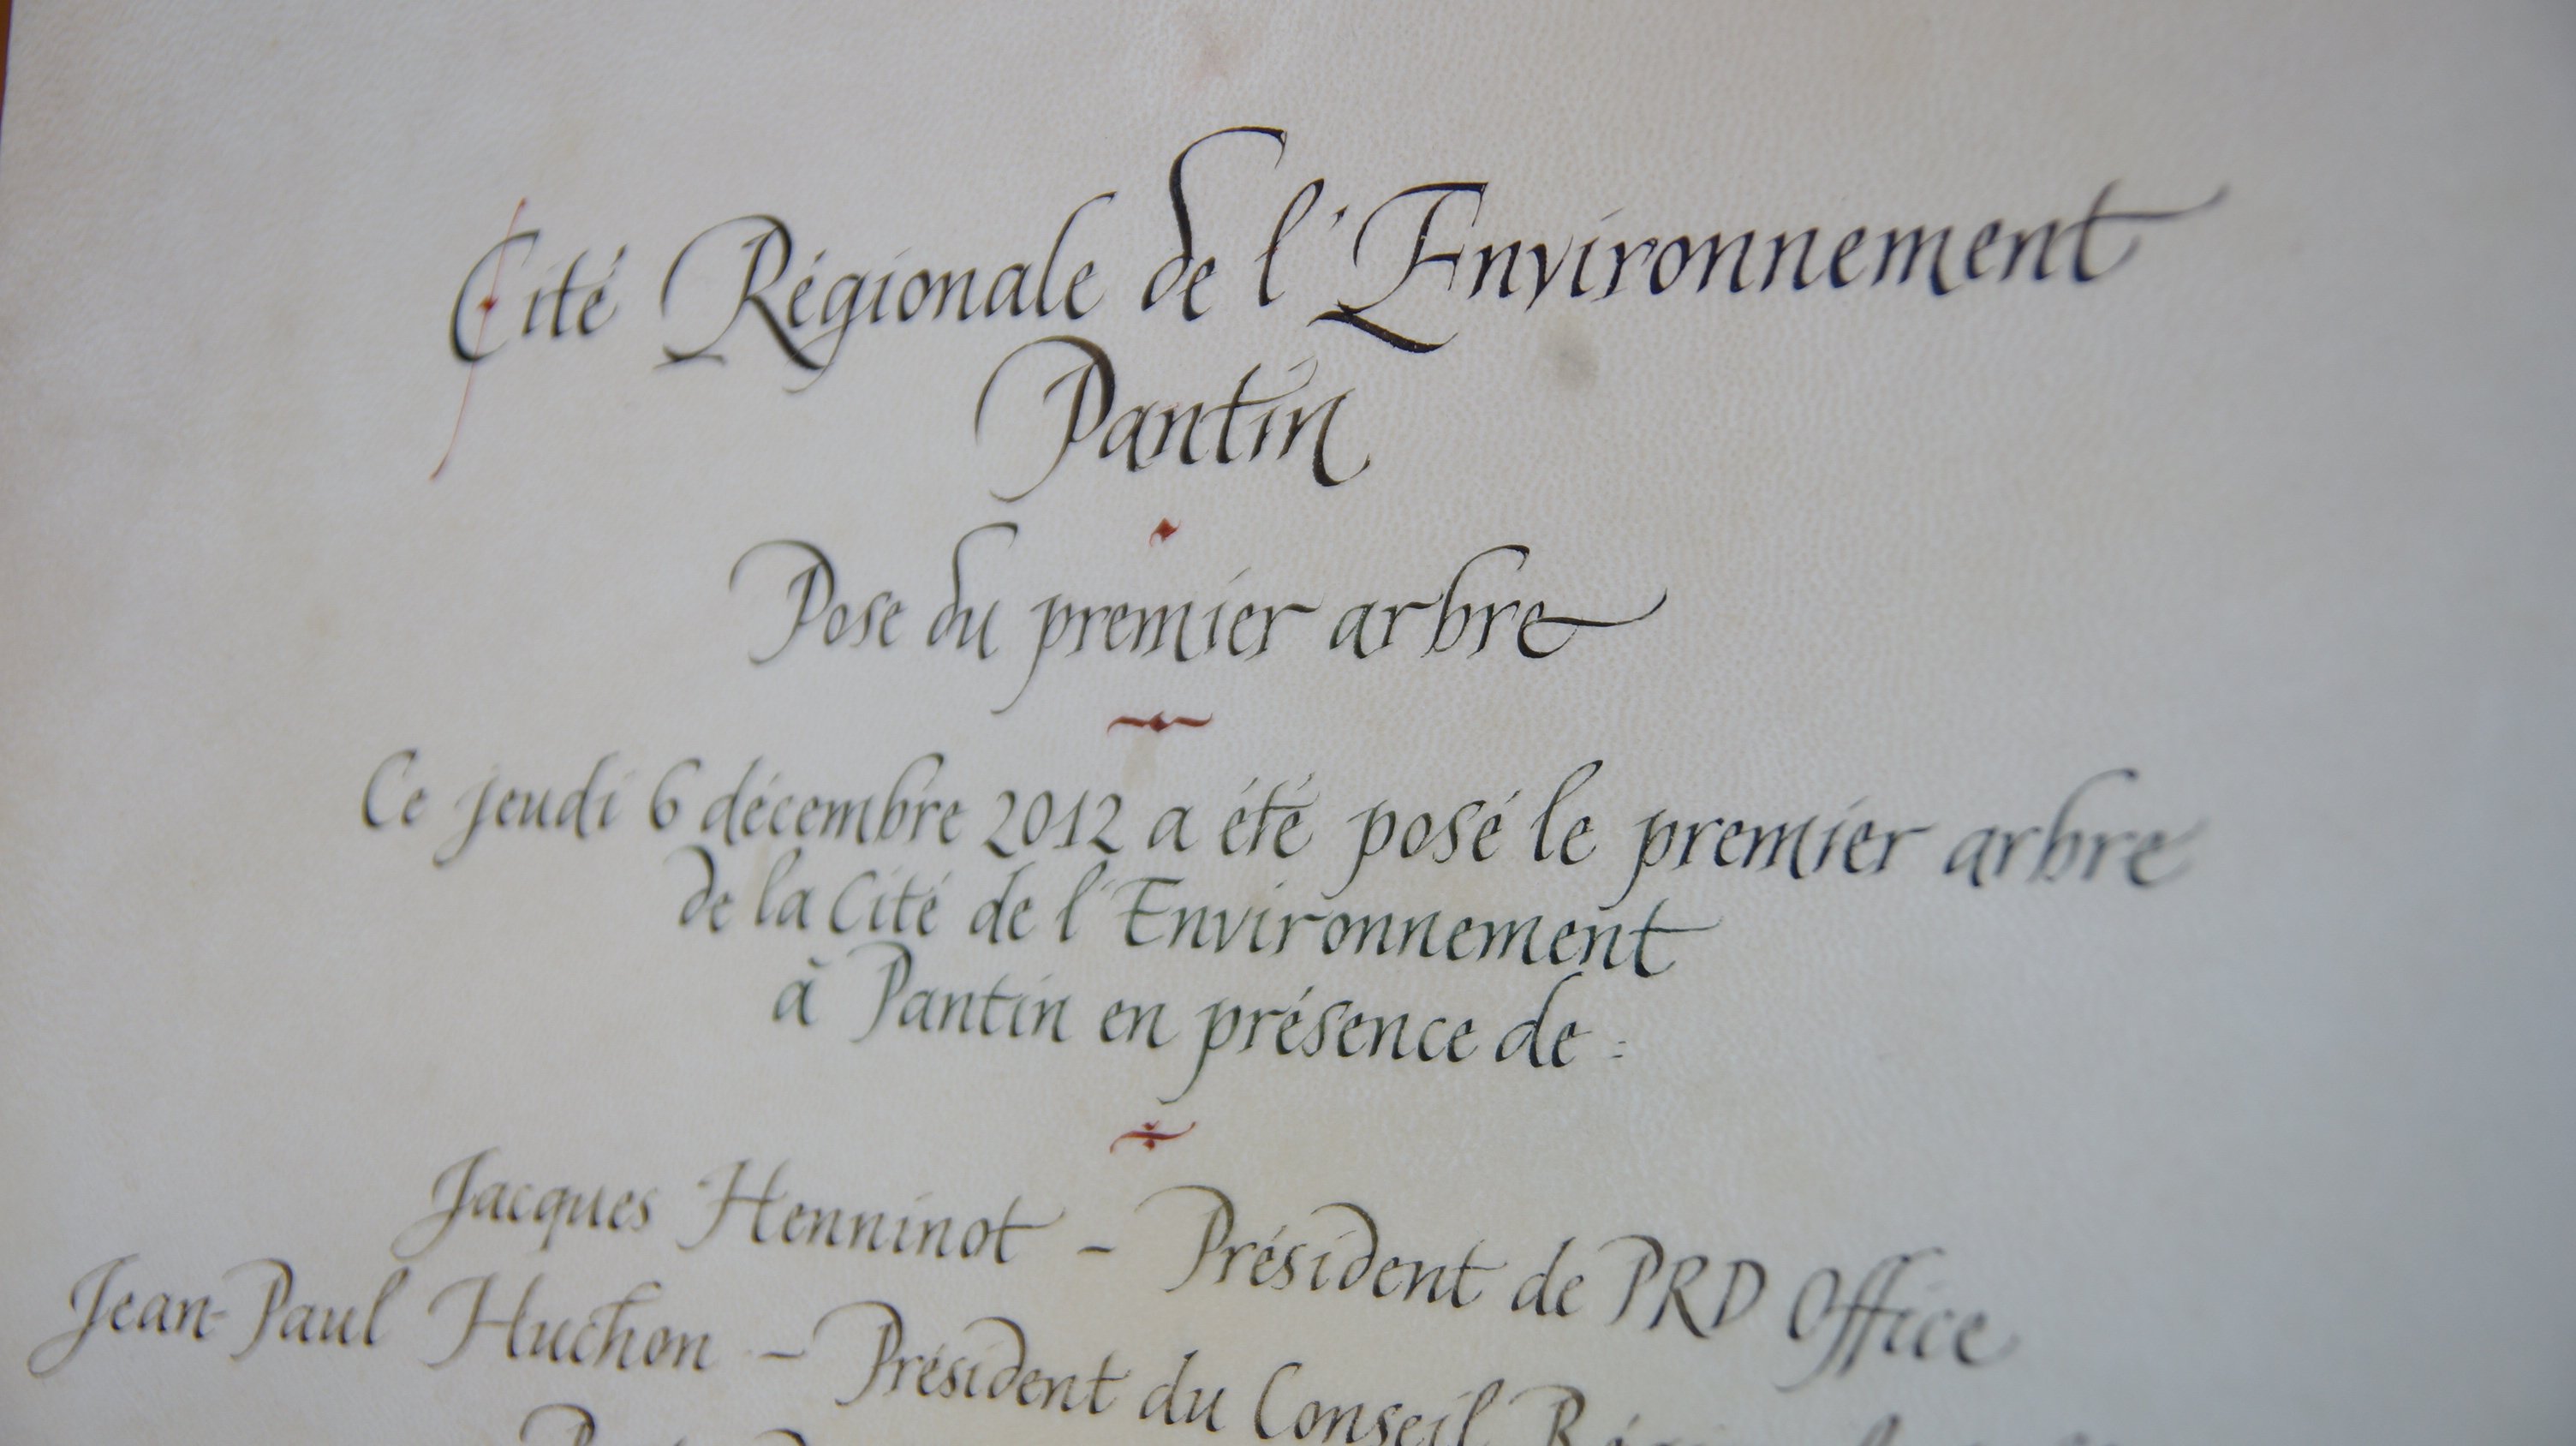 Cité Régionale de l'Environnement
Pantin
Pose du premier arbre
Ce jeudi 6 décembre 2012 a été posé le premier arbre
de la Cité de l'Environnement
à Pantin en présence de :
Jacques Henninot - Président de PRD Office
Jean-Paul Huchon - Président du Conseil